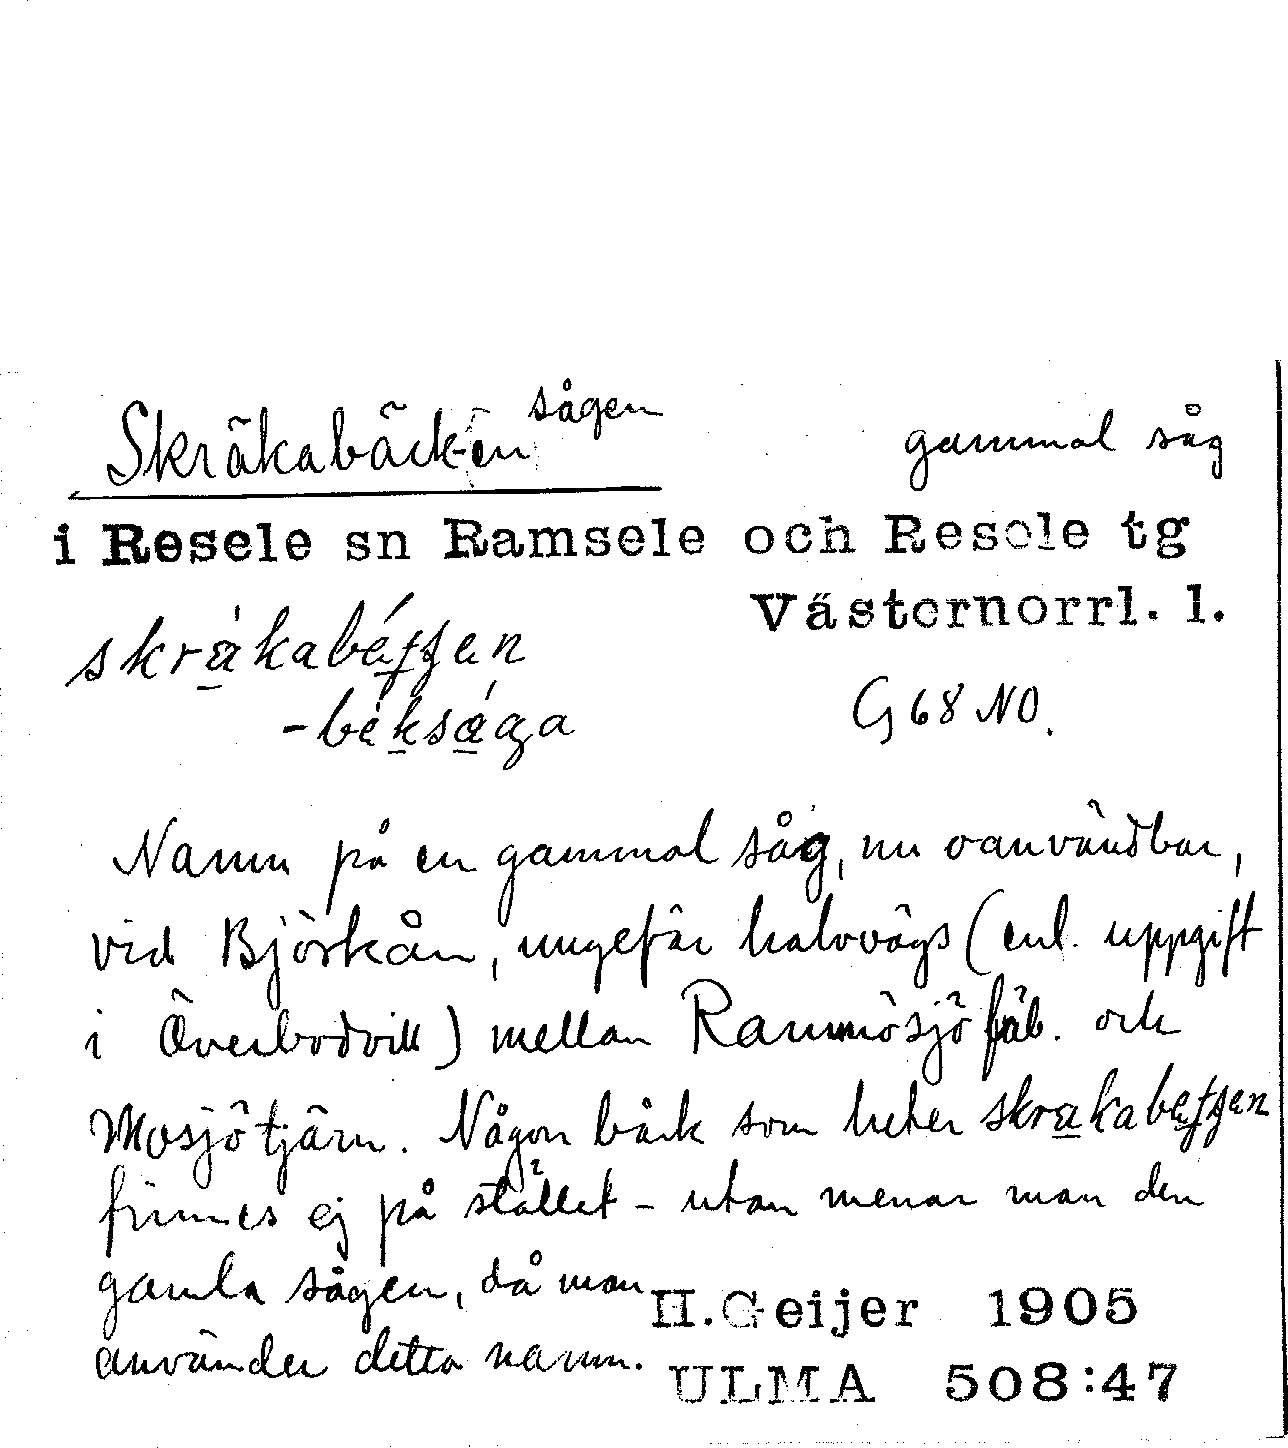 Skräkabäck-en sågen
gammal såg
i Resele sn Ramsele och Resele tg
Västernorrl. l.
G 68 NO.
Namn på en gammal såg, nu oanvändbar,
vid Björkån, ungefär halvvägs (enl. uppgift
i Överbodvill) mellan Rammösjö fäb. och
Mosjötjärn. Någon bäck som heter
finnes ej på stället - utan menar man den
gamla sågen, då man
använder detta namn.
H. Geijer 1905
ULMA 508:47